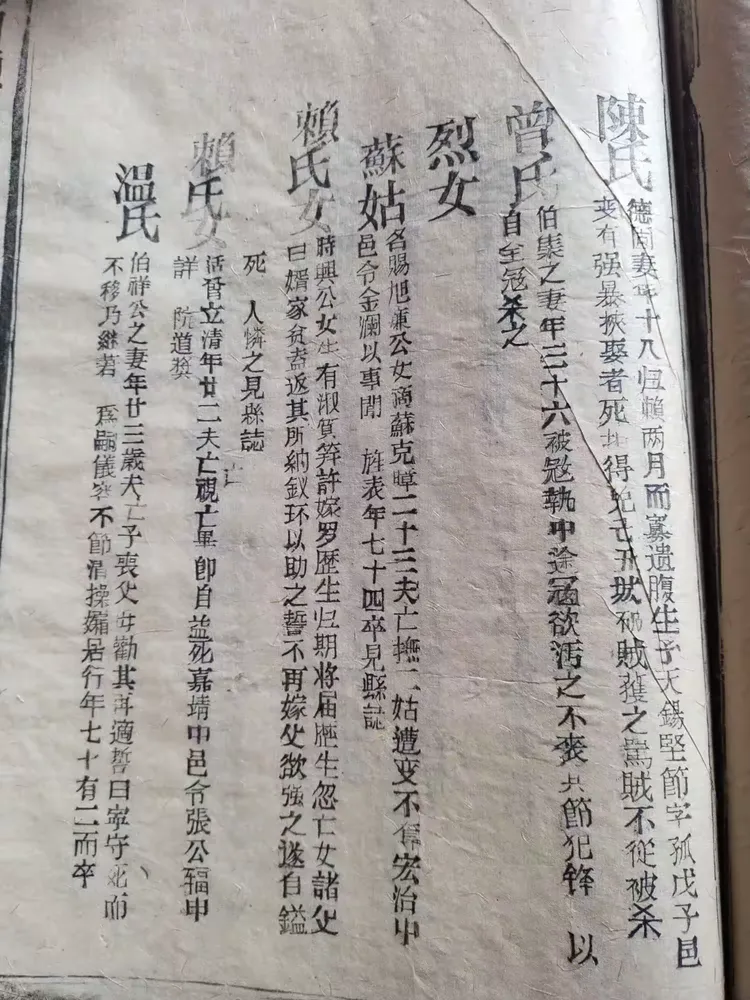 陳氏
德尚妻年十八归賴两月而寡遺腹生子天錫堅節字孤戊子邑
变有强暴挾娶者死共得免己丑城破賊獲之罵賊不從被杀
曾氏
伯集之妻年三十六被冦執中途冦欲污之不喪共節犯锋以
自全冦杀之
烈女
蘇姑
名赐旭兼公女商蘇克暲二十三夫亡撫二姑遭变不奪宏治中
邑令金瀾以事聞 旌表年七十四卒見縣誌
賴氏女
時興公女生有淑質笄許嫁罗歷生归期将届歷生忽亡女諸父
曰婿家貧盍返其所納釵环以助之誓不再嫁父欲强之遂自鎰
死 人憐之見縣誌
賴氏女
活胥立清年廿二夫亡視亡畢即自益死嘉靖中邑令張公辐申
詳 院道奖
温氏
伯祥公之妻年廿三歲夫亡子喪父母勸其再適誓曰寕守死而
不移乃继若 為嗣儀容不節清操孀居行年七十有二而卒